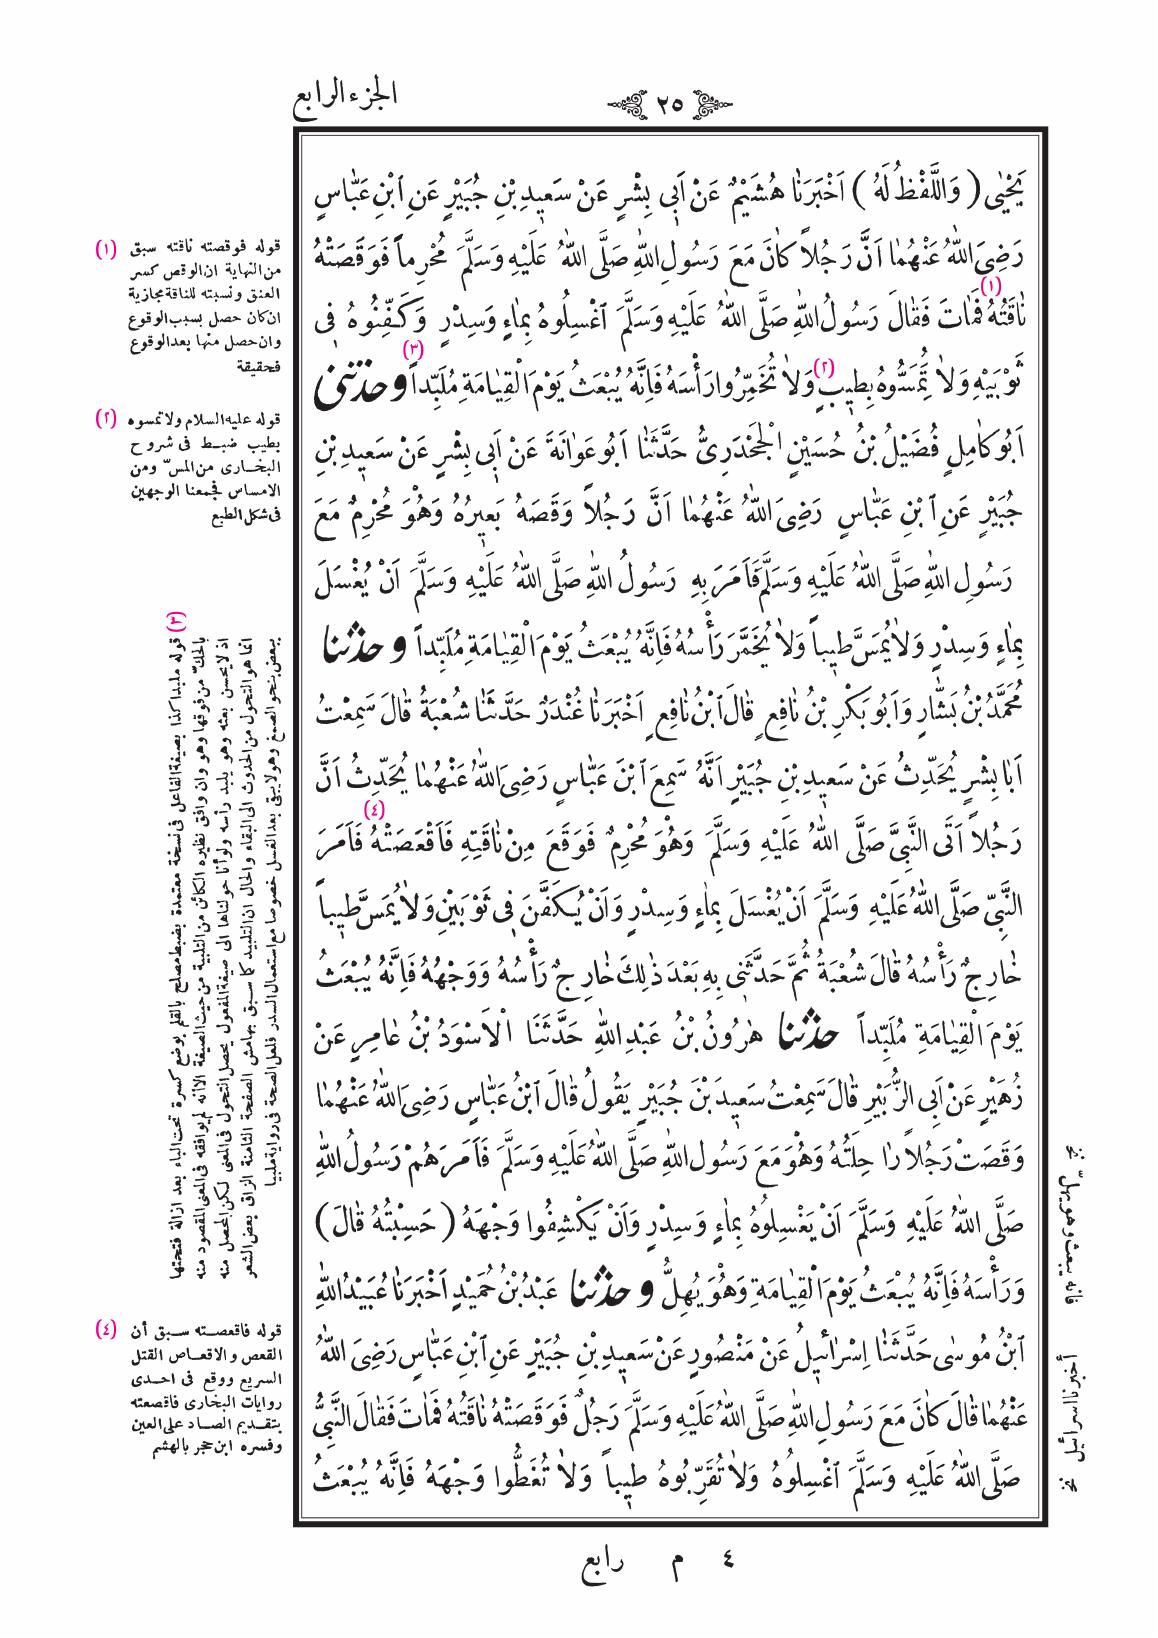 الجزء الرابع
٢٥
يَحْيٰى ( وَاللَّفْظُ لَهُ ) اَخْبَرَنَا هُشَيْمٌ عَنْ اَبِى بِشْرٍ عَنْ سَعِيدِ بْنِ جُبَيْرٍ عَنِ ابْنِ عَبَّاسٍ
رَضِىَ اللهُ عَنْهُمَا اَنَّ رَجُلاً كَانَ مَعَ رَسُولِ اللهِ صَلَّى اللهُ عَلَيْهِ وَسَلَّمَ مُحْرِماً فَوَقَصَتْهُ
نَاقَتُهُ (١) فَمَاتَ فَقَالَ رَسُولُ اللهِ صَلَّى اللهُ عَلَيْهِ وَسَلَّمَ اغْسِلُوهُ بِمَاءٍ وَسِدْرٍ وَكَفِّنُوهُ فِى
ثَوْبَيْهِ وَلاَ تُمِسُّوهُ بِطِيبٍ (٢) وَلاَ تُخَمِّرُوا رَأْسَهُ فَاِنَّهُ يُبْعَثُ يَوْمَ الْقِيَامَةِ مُلَبِّداً (٣) وحدثنى
اَبُو كَامِلٍ فُضَيْلُ بْنُ حُسَيْنٍ الْجَحْدَرِىُّ حَدَّثَنَا اَبُو عَوَانَةَ عَنْ اَبِى بِشْرٍ عَنْ سَعِيدِ بْنِ
جُبَيْرٍ عَنِ ابْنِ عَبَّاسٍ رَضِىَ اللهُ عَنْهُمَا اَنَّ رَجُلاً وَقَصَهُ بَعِيرُهُ وَهُوَ مُحْرِمٌ مَعَ
رَسُولِ اللهِ صَلَّى اللهُ عَلَيْهِ وَسَلَّمَ فَاَمَرَ بِهِ رَسُولُ اللهِ صَلَّى اللهُ عَلَيْهِ وَسَلَّمَ اَنْ يُغْسَلَ
بِمَاءٍ وَسِدْرٍ وَلاَ يُمَسَّ طِيباً وَلاَ يُخَمَّرَ رَأْسُهُ فَاِنَّهُ يُبْعَثُ يَوْمَ الْقِيَامَةِ مُلَبِّداً وحدثنا
مُحَمَّدُ بْنُ بَشَّارٍ وَاَبُو بَكْرِ بْنُ نَافِعٍ قَالَ ابْنُ نَافِعٍ اَخْبَرَنَا غُنْدَرٌ حَدَّثَنَا شُعْبَةُ قَالَ سَمِعْتُ
اَبَا بِشْرٍ يُحَدِّثُ عَنْ سَعِيدِ بْنِ جُبَيْرٍ اَنَّهُ سَمِعَ ابْنَ عَبَّاسٍ رَضِىَ اللهُ عَنْهُمَا يُحَدِّثُ اَنَّ
رَجُلاً اَتَى النَّبِىَّ صَلَّى اللهُ عَلَيْهِ وَسَلَّمَ وَهُوَ مُحْرِمٌ فَوَقَعَ مِنْ نَاقَتِهِ فَاَقْعَصَتْهُ (٤) فَاَمَرَ
النَّبِىُّ صَلَّى اللهُ عَلَيْهِ وَسَلَّمَ اَنْ يُغْسَلَ بِمَاءٍ وَسِدْرٍ وَاَنْ يُكَفَّنَ فِى ثَوْبَيْنِ وَلاَ يُمَسَّ طِيباً
خَارِجٌ رَأْسُهُ قَالَ شُعْبَةُ ثُمَّ حَدَّثَنِى بِهِ بَعْدَ ذٰلِكَ خَارِجٌ رَأْسُهُ وَوَجْهُهُ فَاِنَّهُ يُبْعَثُ
يَوْمَ الْقِيَامَةِ مُلَبِّداً حدثنا هٰرُونُ بْنُ عَبْدِ اللهِ حَدَّثَنَا الْاَسْوَدُ بْنُ عَامِرٍ عَنْ
زُهَيْرٍ عَنْ اَبِى الزُّبَيْرِ قَالَ سَمِعْتُ سَعِيدَ بْنَ جُبَيْرٍ يَقُولُ قَالَ ابْنُ عَبَّاسٍ رَضِىَ اللهُ عَنْهُمَا
وَقَصَتْ رَجُلاً رَاحِلَتُهُ وَهُوَ مَعَ رَسُولِ اللهِ صَلَّى اللهُ عَلَيْهِ وَسَلَّمَ فَاَمَرَهُمْ رَسُولُ اللهِ
صَلَّى اللهُ عَلَيْهِ وَسَلَّمَ اَنْ يَغْسِلُوهُ بِمَاءٍ وَسِدْرٍ وَاَنْ يَكْشِفُوا وَجْهَهُ ( حَسِبْتُهُ قَالَ )
وَرَأْسَهُ فَاِنَّهُ يُبْعَثُ يَوْمَ الْقِيَامَةِ وَهُوَ يُهِلُّ وحدثنا عَبْدُ بْنُ حُمَيْدٍ اَخْبَرَنَا عُبَيْدُ اللهِ
ابْنُ مُوسٰى حَدَّثَنَا اِسْرَائِيلُ عَنْ مَنْصُورٍ عَنْ سَعِيدِ بْنِ جُبَيْرٍ عَنِ ابْنِ عَبَّاسٍ رَضِىَ اللهُ
عَنْهُمَا قَالَ كَانَ مَعَ رَسُولِ اللهِ صَلَّى اللهُ عَلَيْهِ وَسَلَّمَ رَجُلٌ فَوَقَصَتْهُ نَاقَتُهُ فَمَاتَ فَقَالَ النَّبِىُّ
صَلَّى اللهُ عَلَيْهِ وَسَلَّمَ اغْسِلُوهُ وَلاَ تُقَرِّبُوهُ طِيباً وَلاَ تُغَطُّوا وَجْهَهُ فَاِنَّهُ يُبْعَثُ
(١) قوله فوقصته ناقته سبق
من النهاية ان الوقص كسر
العنق ونسبته للناقة مجازية
ان كان حصل بسبب الوقوع
وان حصل منها بعد الوقوع
فحقيقة
(٢) قوله عليه السلام ولا تمسوه
بطيب ضبط فى شروح
البخارى من المسّ ومن
الامساس فجمعنا الوجهين
فى شكل الطبع
(٣) قوله ملبدا كذا بصيغة الفاعل فى نسخة معتمدة بضبط مصلح بالقلم بوضع كسرة تحت الباء بعد ازالة فتحتها
بالحكّ من فوقها وهو وان وافق نظيره الكائن من التلبية من حيث الصيغة الا أنه لم يوافقه فى المعنى المقصود منه
اذ لا يحسن بعثه وهو يلبد رأسه ولو أنا حولناها الى صيغة المفعول يحصل التحول فى المعنى لكن المحصل منه
انما هو التحول من الحدوث الى البقاء والحال ان التلبيد كا سبق بهامش الصفحة الثامنة الزاق بعض الشعر
ببعض بنحو الصمغ وهو لا يبقى بعد الغسل خصوصا مع استعمال السدر فلعل الصحة فى رواية ملبيا
(٤) قوله فاقعصته سبق أن
القعص والاقعاص القتل
السريع ووقع فى احدى
روايات البخارى فاقصعته
بتقديم الصاد على العين
وفسره ابن حجر بالهشم
فانه يبعث وهو يهلّ نخ
أخبرنا اسرائيل نخ
٤ م رابع